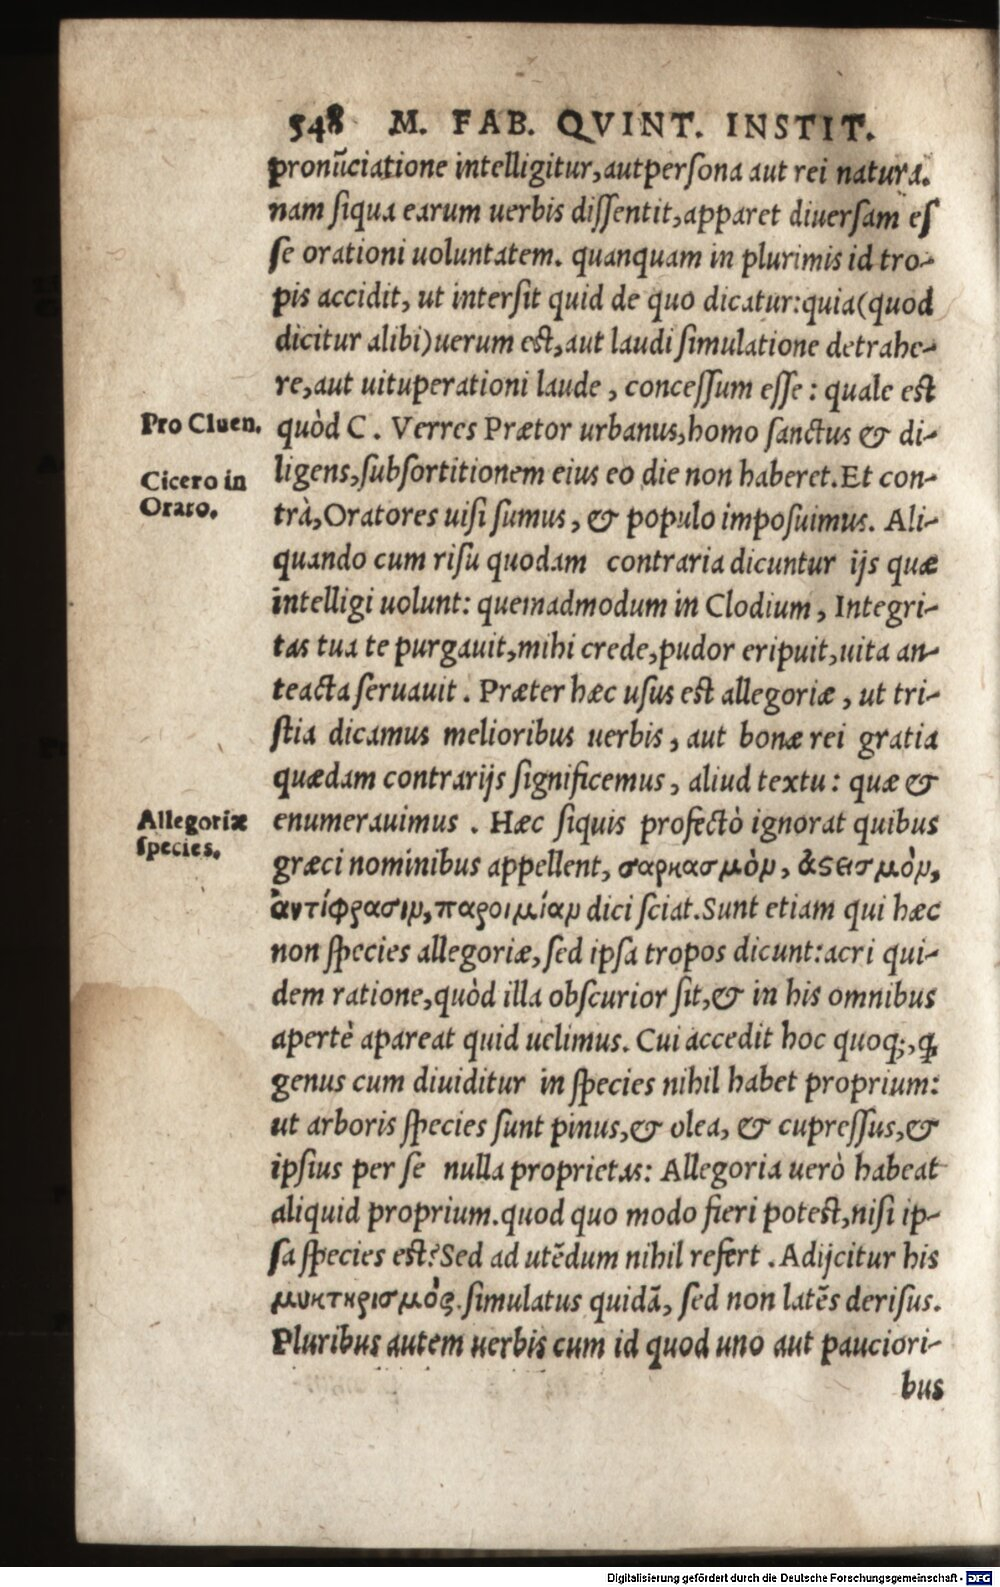 548 M. FAB. QVINT. INSTIT.
pronũciatione intelligitur, aut persona aut rei natura.
nam siqua earum uerbis dissentit, apparet diuersam es
se orationi uoluntatem. quanquam in plurimis id tro-
pis accidit, ut intersit quid de quo dicatur: quia (quod
dicitur alibi) uerum est, aut laudi simulatione detrahe-
re, aut uituperationi laude, concessum esse: quale est
Pro Cluen.
quòd C. Verres Prætor urbanus, homo sanctus & di-
Cicero in
Orato.
ligens, subsortitionem eius eo die non haberet. Et con-
trà, Oratores uisi sumus, & populo imposuimus. Ali-
quando cum risu quodam contraria dicuntur ijs quæ
intelligi uolunt: quemadmodum in Clodium, Integri-
tas tua te purgauit, mihi crede, pudor eripuit, uita an-
teacta seruauit. Præter hæc usus est allegoriæ, ut tri-
stia dicamus melioribus uerbis, aut bonæ rei gratia
quædam contrarijs significemus, aliud textu: quæ &
Allegoriæ
species.
enumerauimus. Hæc siquis profectò ignorat quibus
græci nominibus appellent, σαρκασμὸν, ἀϛεισμὸν,
ἀντίφρασιν, παροιμίαν dici sciat. Sunt etiam qui hæc
non species allegoriæ, sed ipsa tropos dicunt: acri qui-
dem ratione, quòd illa obscurior sit, & in his omnibus
apertè apareat quid uelimus. Cui accedit hoc quoq;, ꝙ
genus cum diuiditur in species nihil habet proprium:
ut arboris species sunt pinus, & olea, & cupressus, &
ipsius per se nulla proprietas: Allegoria uerò habeat
aliquid proprium. quod quo modo fieri potest, nisi ip-
sa species est? Sed ad utẽdum nihil refert. Adijcitur his
μυκτηρισμὸς. simulatus quidã, sed non latẽs derisus.
Pluribus autem uerbis cum id quod uno aut pauciori-
bus
Digitalisierung gefördert durch die Deutsche Forschungsgemeinschaft - DFG